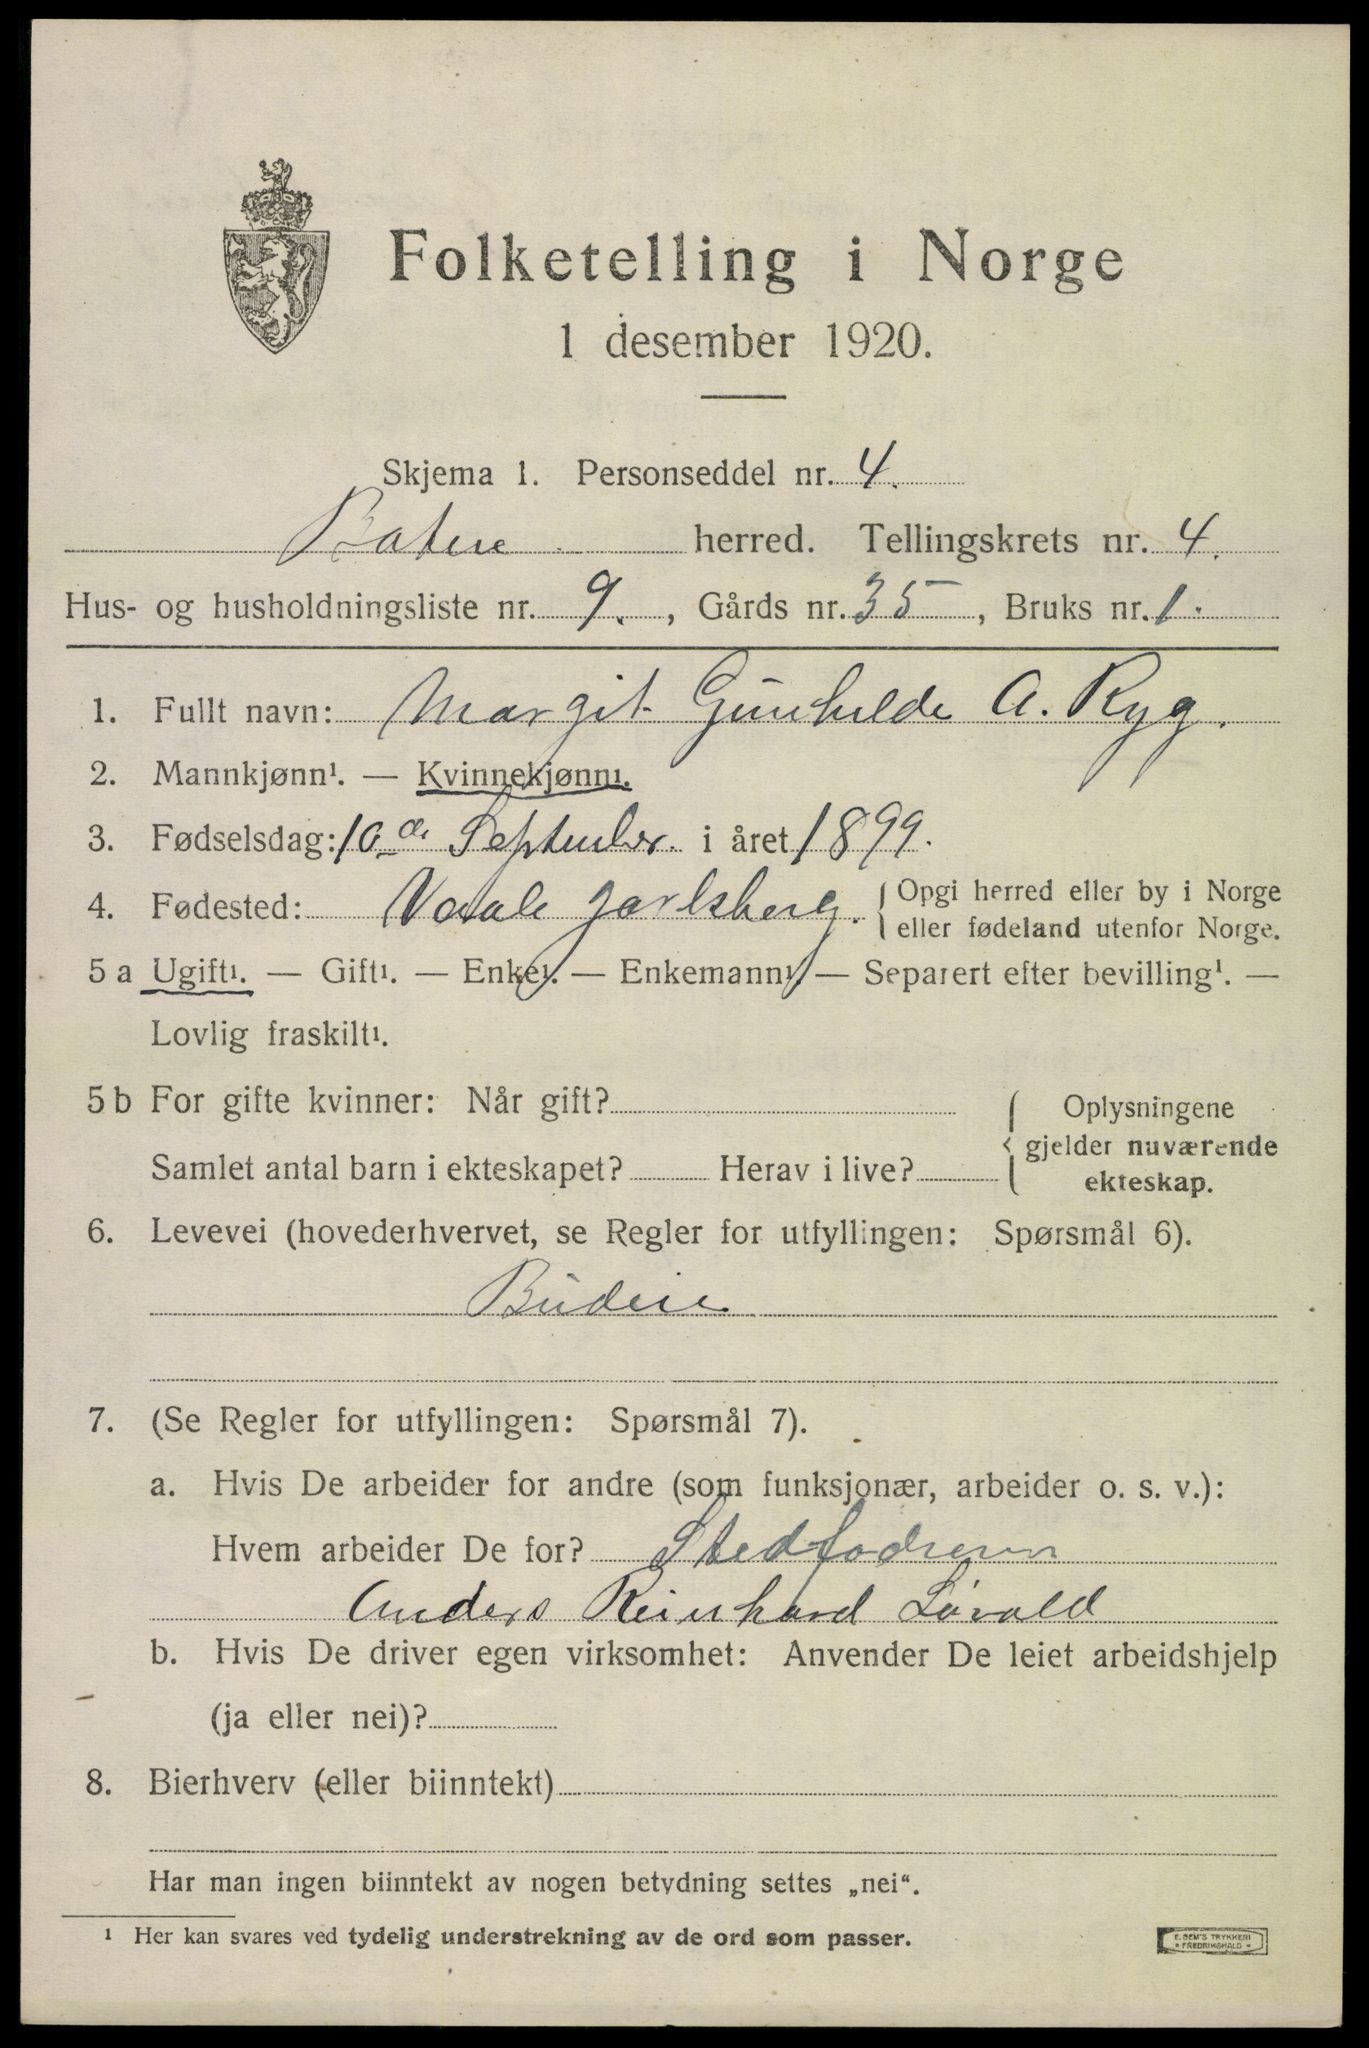 Folketelling i Norge
1 desember 1920.
Skjema 1. Personseddel nr. 4.
Botne herred. Tellingskrets nr. 4.
Hus- og husholdningsliste nr. 9. , Gårds nr. 35 , Bruks nr. 1.
1. Fullt navn: Margit Gunhilde A. Ryg.
2. Mannkjønn¹. — Kvinnekjønn¹.
3. Fødselsdag: 10de September. i året 1899.
4. Fødested: Vaale Jarlsberg. { Opgi herred eller by i Norge
eller fødeland utenfor Norge.
5 a Ugift¹. — Gift¹. — Enke¹. — Enkemann¹. — Separert efter bevilling¹. —
Lovlig fraskilt¹.
5 b For gifte kvinner: Når gift? { Oplysningene
gjelder nuværende
Samlet antal barn i ekteskapet? Herav i live?
ekteskap.
6. Levevei (hovederhvervet, se Regler for utfyllingen: Spørsmål 6).
Budeie
7. (Se Regler for utfyllingen: Spørsmål 7).
a. Hvis De arbeider for andre (som funksjonær, arbeider o. s. v.):
Hvem arbeider De for? Stedfodreren
Anders Reinhard Løvold
b. Hvis De driver egen virksomhet: Anvender De leiet arbeidshjelp
(ja eller nei)?
8. Bierhverv (eller biinntekt)
Har man ingen biinntekt av nogen betydning settes „nei“.
¹ Her kan svares ved tydelig understrekning av de ord som passer.
E. SEM'S TRYKKERI
* FREDRIKSHALD *